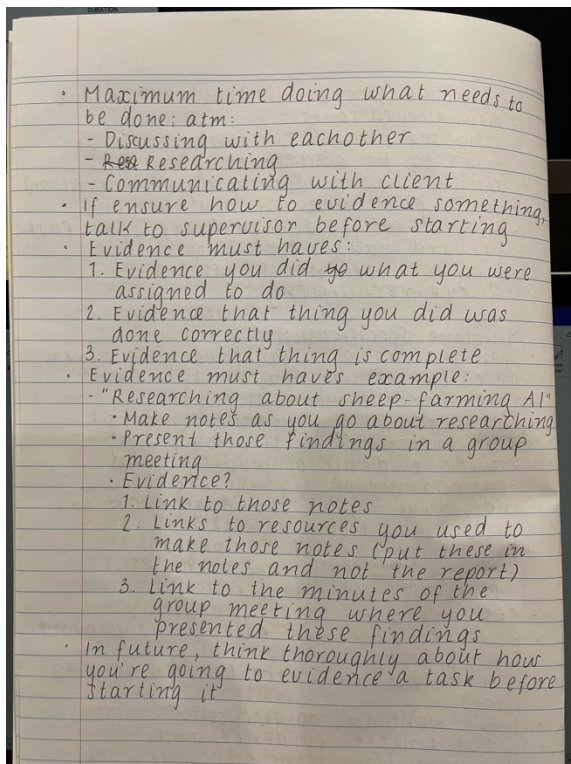 DURATION
· Maximum time doing what needs to
be done; atm:
- Discussing with eachother
- Researching
- Communicating with client
· If ensure how to evidence something,
talk to supervisor before starting
· Evidence must haves:
1. Evidence you did what you were
assigned to do
2. Evidence that thing you did was
done correctly
3. Evidence that thing is complete
· Evidence must haves example:
- "Researching about sheep-farming AI"
· Make notes as you go about researching
· Present those findings in a group
meeting
· Evidence?
1. Link to those notes
2. Links to resources you used to
make those notes (put these in
the notes and not the report)
3. Link to the minutes of the
group meeting where you
presented these findings
· In future, think thoroughly about how
you're going to evidence a task before
starting it